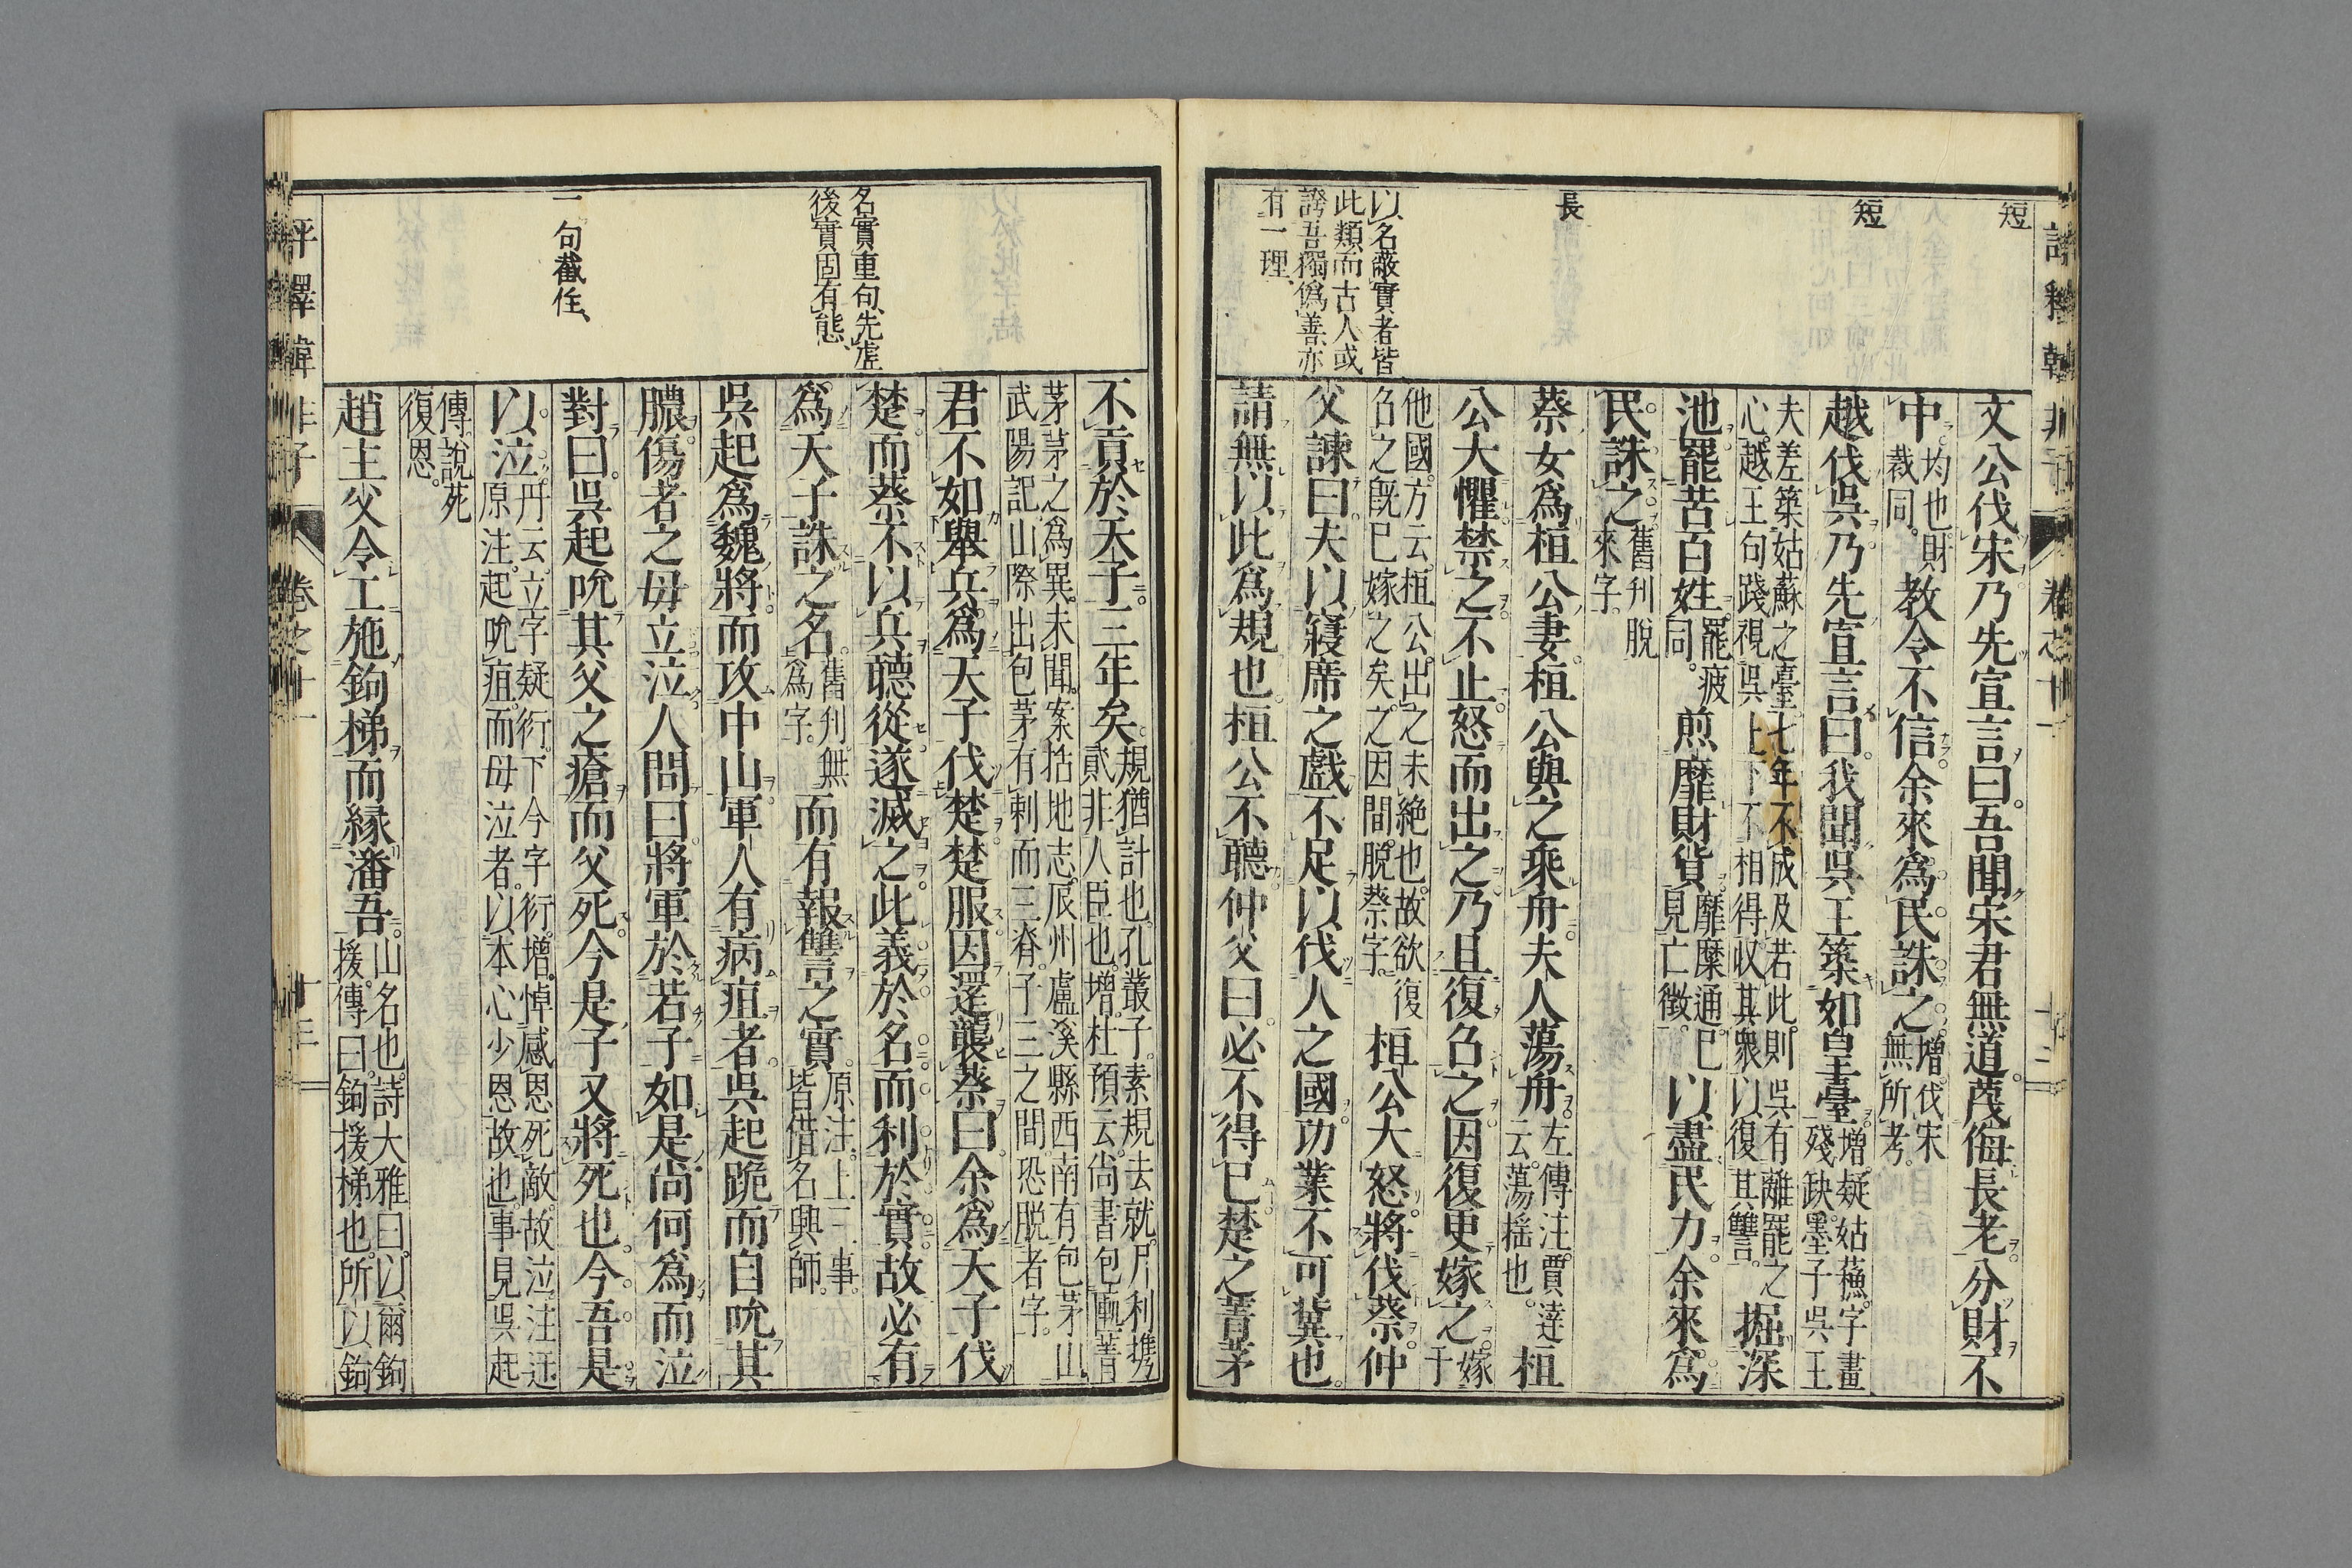 短
短
長
以名蔽實者皆
此類而古人或
譎吾獨僞善亦
有一理
文公伐宋乃先宣言曰吾聞宋君無道蔑侮長老分財不
中均也財裁同教令不信余來爲民誅之增伐宋無所考
越伐吳乃先宣言曰我聞吳王築如皇臺增疑姑蘓字畫殘缺墨子吳王
夫差築姑蘇之臺七年不成及若此則吳有離罷之心越王句踐視吳上下不相得収其衆以復其讐掘深
池罷苦百姓罷疲同煎靡財貨靡糜通已見亡徴以盡民力余來爲
民誅之舊刋脫來字
蔡女爲桓公妻桓公與之乘舟夫人蕩舟左傳注賈逵云蕩揺也桓
公大懼禁之不止怒而出之乃且復召之因復更嫁之嫁于
他國方云桓公出之未絶也故欲復召之旣已嫁之矣之因間脫蔡字桓公大怒將伐蔡仲
父諫曰夫以寢席之戲不足以伐人之國功業不可冀也
請無以此爲規也桓公不聽仲父曰必不得已楚之菁茅
名實重句先虛
後實固有態
一句截住
不貢於天子三年矣規猶計也孔叢子素規去就尸利擕貳非人臣也增杜預云尚書包匭菁
茅茅之爲異未聞案括地志辰州盧溪縣西南有包茅山武陽記山際出包茅有刺而三脊子三之間恐脫者字
君不如舉兵爲天子伐楚楚服因還襲蔡曰余爲天子伐
楚而蔡不以兵聽從遂滅之此義於名而利於實故必有
爲天子誅之名舊刋無爲字而有報讐之實原注上三事皆借名興師
吳起爲魏將而攻中山軍人有病疽者吳起跪而自吮其
膿傷者之母立泣人問曰將軍於若子如是尚何爲而泣
對曰吳起吮其父之瘡而父死今是子又將死也今吾是
以泣丹云立字疑衍下今字衍增悼感恩死敵故泣注迂原注起吮疽而母泣者以本心少恩故也事見吳起
傳說死復恩
趙主父令工施鉤梯而緣潘吾山名也詩大雅曰以爾鉤援傳曰鉤援梯也所以鉤